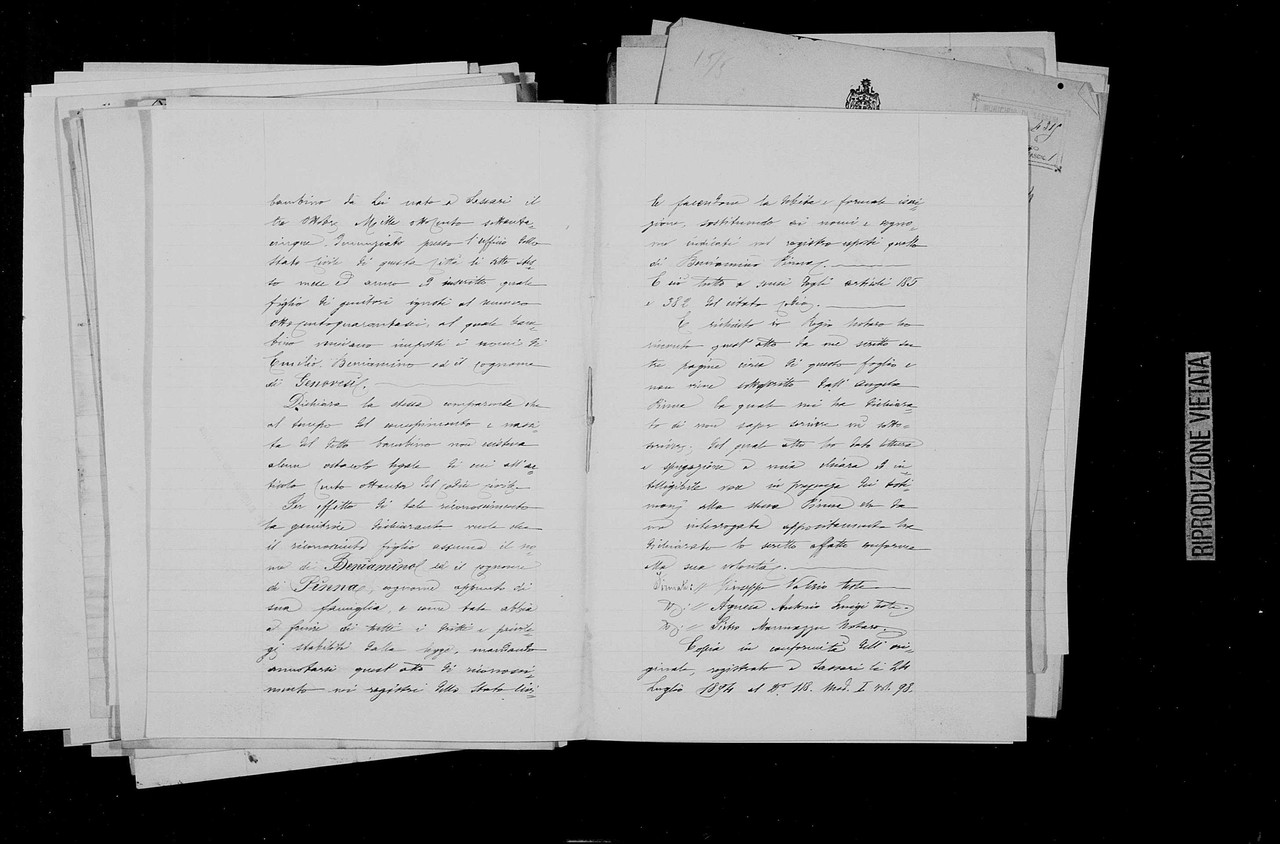 bambino da Lei nato a Sassari il
tre ottobre Mille ottocento settanta-
cinque, Denunziato presso l'uffizio dello
Stato Civile di questa Città li sette stes-
so mese ed anno ed inscritto quale
figlio di genitori ignoti al numero
ottocentoquarantasei, al quale bam-
bino venivano imposti i nomi di
Emilio Beniamino ed il cognome
di Genovesi.
Dichiara la stessa comparente che
al tempo del concepimento e nasci-
ta del detto bambino non esisteva
alcun ostacolo legale di cui all'ar-
ticolo cento ottanta del codice civile.
Per effetto di tale riconoscimento
la genitrice dichiarante vuole che
il riconosciuto figlio assuma il no-
me di Beniamino ed il cognome
di Pinna, cognome appunto di
sua famiglia, e come tale abbia
a fruire di tutti i dritti e privile-
gi stabiliti dalla legge, mandando
annotarsi quest'atto di riconosci-
mento nei registri dello Stato Civi-
le facendone la debita e formale iscri-
zione, sostituendo ai nomi e cogno-
me indicati nel registro esposti quello
di Beniamino Pinna.
E ciò tutto a sensi degli articoli 185
e 382 del citato codice.
E richiesto io Regio Notaro ho
ricevuto quest'atto da me scritto su
tre pagine circa di questo foglio e
non viene sottoscritto dall'Angela
Pinna la quale mi ha dichiara-
to di non saper scrivere nè sotto-
scrivere; del quale atto ho dato lettura
e spiegazione a mia chiara ed in-
telligibile voce in presenza dei testi-
monj alla stessa Pinna che da
me interrogata appositamente ha
dichiarato lo scritto affatto conforme
alla sua volontà.
Firmati: // Giuseppe Valerio teste
Id: // Agnesa Antonio Luigi teste
Id: // Pietro Marruzzu Notaro
Copia in conformità dell'ori-
ginale, registrato a Sassari li
Luglio 1894 al N° 118. Mod. I vol. 98.
15/8
RIPRODUZIONE VIETATA